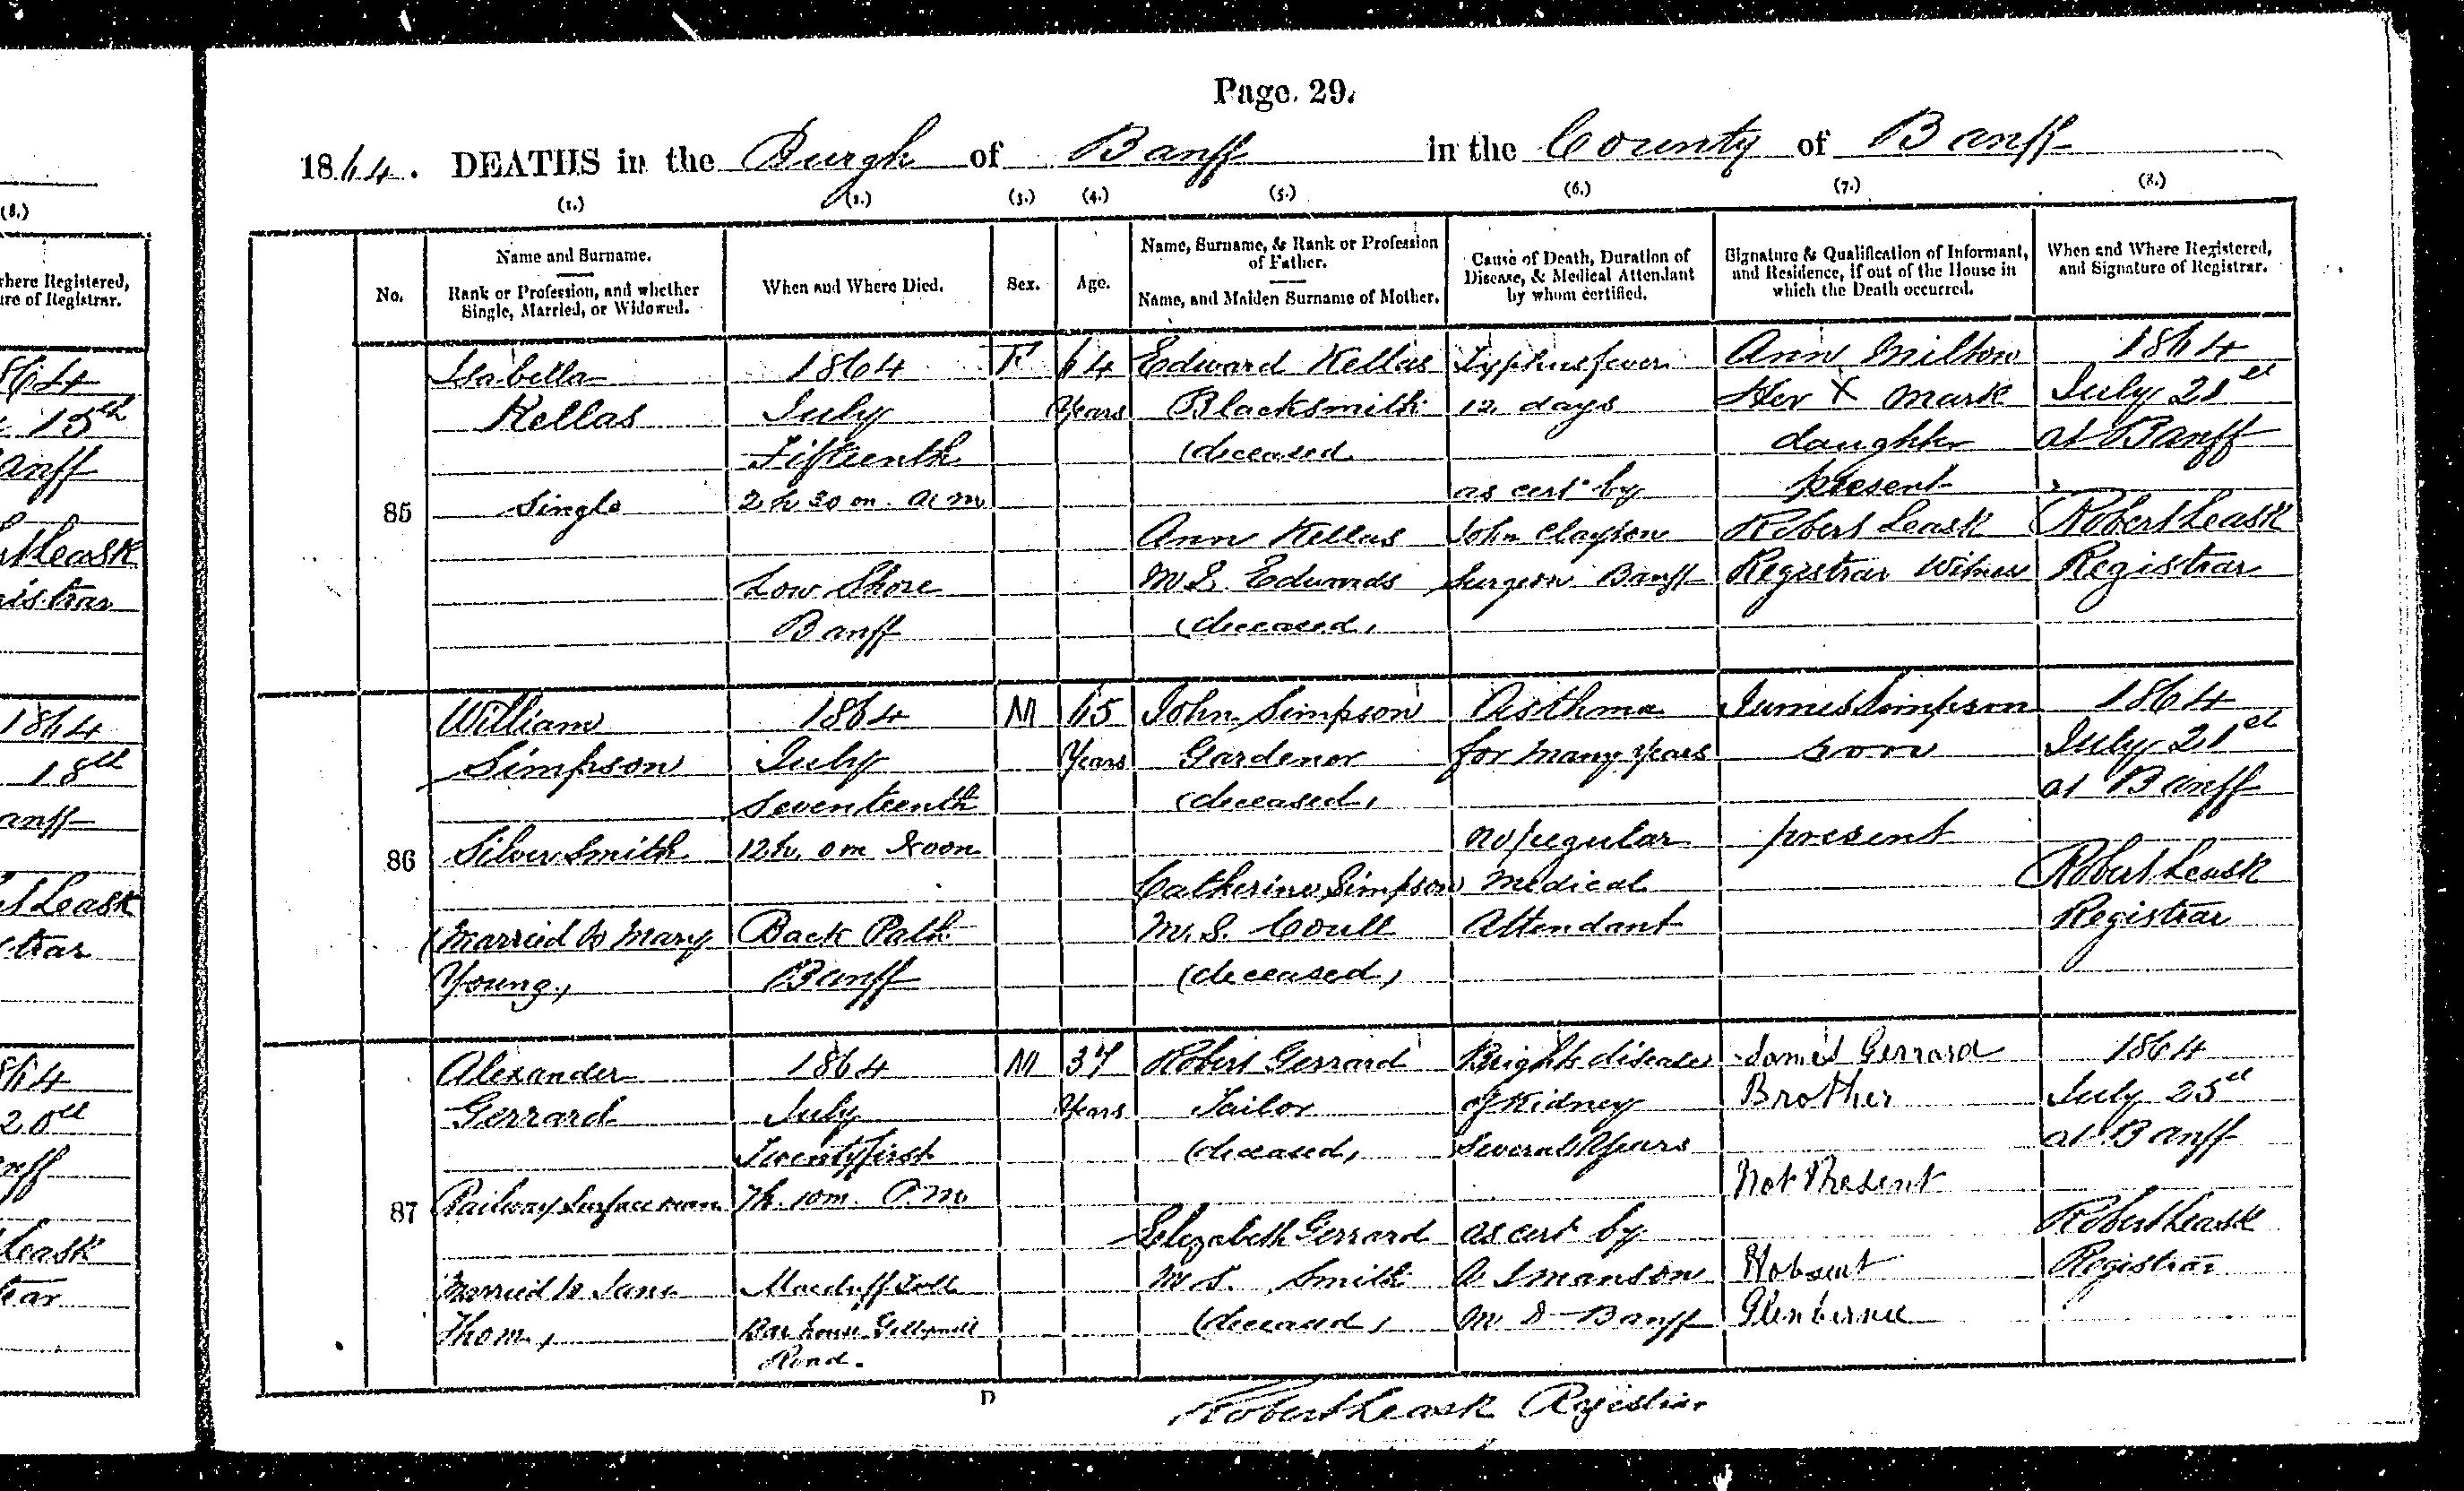 (8.)
where Registered,
ure of Registrar.
864
15th
anff
rtLeask
istrar
1864
18th
anff
rt Leask
trar
864
20th
nff
Leask
rar
Page. 29.
1864. DEATHS in the Burgh of Banff in the County of Banff
(1.) (2.) (3.) (4.) (5.) (6.) (7.) (8.)
No.
Name and Surname.
Rank or Profession, and whether
Single, Married, or Widowed.
When and Where Died.
Sex.
Age.
Name, Surname, & Rank or Profession
of Father.
Name, and Maiden Surname of Mother.
Cause of Death, Duration of
Disease, & Medical Attendant
by whom certified.
Signature & Qualification of Informant,
and Residence, if out of the House in
which the Death occurred.
When and Where Registered,
and Signature of Registrar.
85
Isabella
Kellas
Single
1864
July
Fifteenth
2 h 30 m. A M
Low Shore
Banff
F
64
Years
Edward Kellas
Blacksmith
(deceased
Ann Kellas
M.S. Edwards
(deceased)
Typhus fever
12 days
as cert. by
John Clayson
Surgeon Banff
Ann Milton
Her X Mark
daughter
present
Robert Leask
Registrar Witness
1864
July 21st
at Banff
Robert Leask
Registrar
86
William
Simpson
Silver Smith
(Married to Mary
Young)
1864
July
Seventeenth
12h. 0 m Noon
Back Path
Banff
M
65
Years
John Simpson
Gardener
(deceased)
Catherine Simpson
M.S. Coull
(deceased)
Asthma
for many years
no regular
Medical
Attendant
James Simpson
son
present
1864
July 21st
at Banff
Robert Leask
Registrar
87
Alexander
Gerrard
Railway Surfaceman
Married to Jane
Thom,
1864
July
Twentyfirst
7h. 10m. P.M
Macduff Toll
Bar house Gellymill
Road.
M
37
Years
Robert Gerrard
Tailor
(deceased)
Elizabeth Gerrard
M S. Smith
(deceased)
Brights disease
of Kidney
Several Years
as cert by
A Manson
M D Banff
James Gerrard
Brother
Not Present
1864
July 25th
at Banff
Robert Leask
Registrar
D
Robert Leask Registrar